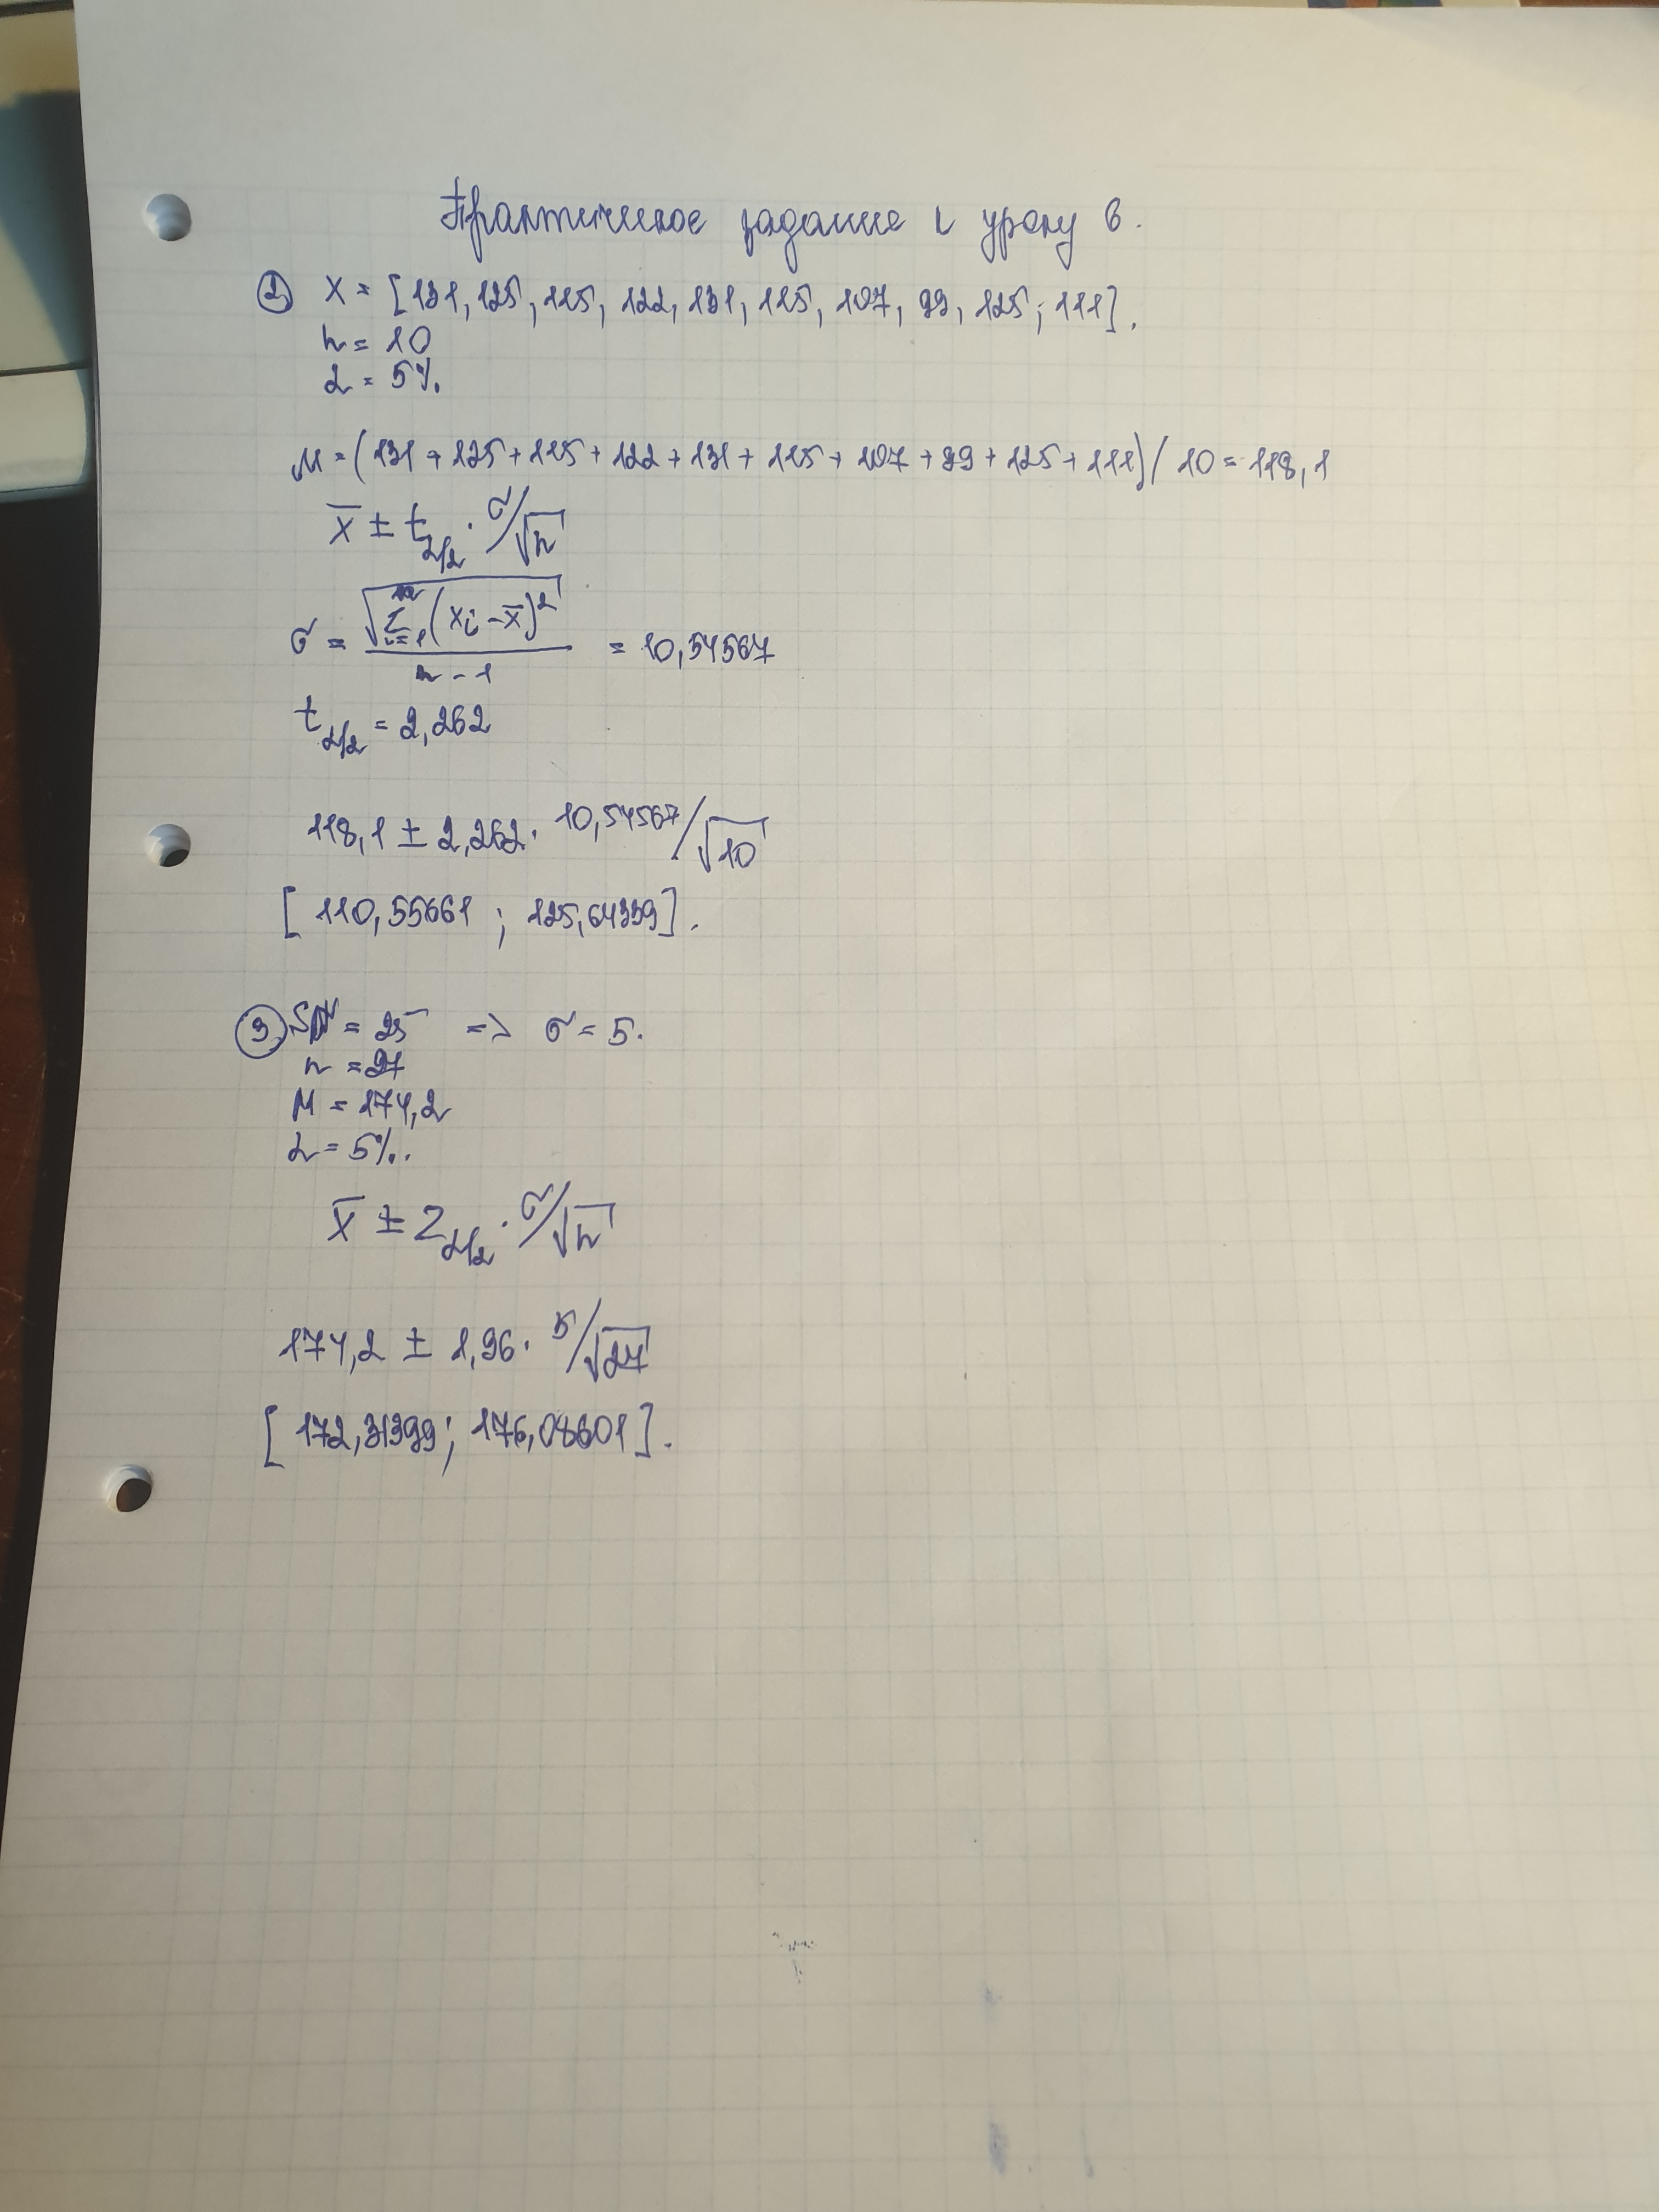 Практическое задание к уроку 6.
② X = [131, 125, 115, 122, 131, 115, 107, 99, 125; 111].
n = 10
α = 5%.
M = (131 + 125 + 115 + 122 + 131 + 115 + 107 + 99 + 125 + 111) / 10 = 118,1
x̄ ± t_{α/2} · σ/√n
σ = √(∑_{i=1}^{n} (xᵢ - x̄)²) / (n - 1) = 10,54567
t_{α/2} = 2,262
118,1 ± 2,262 · 10,54567/√10
[110,55661 ; 125,64339].
③ = 25 => σ = 5.
n = 27
M = 174,2
α = 5%.
x̄ ± Z_{α/2} · σ/√n
174,2 ± 1,96 · 5/√27
[172,31399; 176,08601].